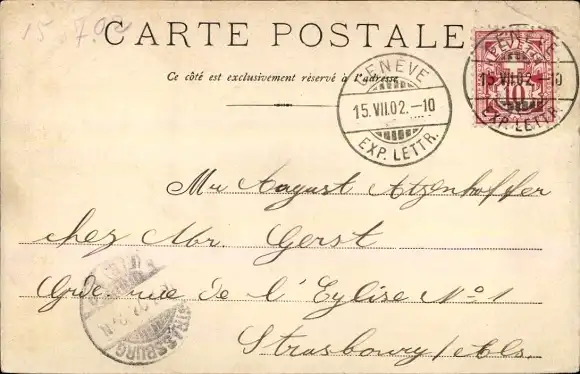 15.7.02
CARTE POSTALE
Ce côté est exclusivement réservé à l'adresse
GENÈVE
15.VII.02.-10
EXP. LETTR.
GENÈVE
15.VII.02.-10
EXP. LETTR.
10
Mr August Atzenhoffer
chez Mr. Gerst
Grde rue de l'Eglise No 1
Strasbourg / Als.
STRASSBURG